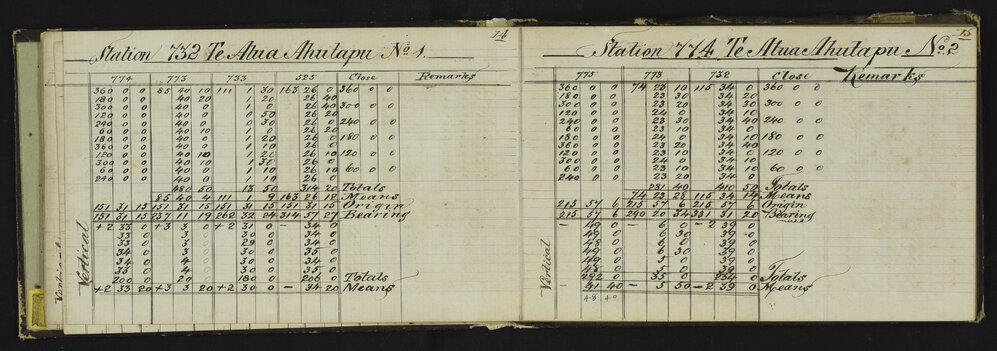 14
Station 732 Te Atua Ahutapu No 1.
774 773 733 525 Close Remarks
360 0 0 85 40 10 111 1 30 163 26 0 360 0 0
180 0 0 40 20 1 20 26 40
300 0 0 40 0 1 0 26 40 300 0 0
120 0 0 40 0 0 50 26 20
240 0 0 40 0 1 0 26 0 240 0 0
60 0 0 40 10 1 0 26 20
180 0 0 40 0 1 20 26 20 180 0 0
360 0 0 40 0 1 10 26 0
120 0 0 40 10 1 20 26 10 120 0 0
300 0 0 40 10 1 30 26 0
60 0 0 40 0 1 10 26 10 60 0 0
240 0 0 40 0 1 10 26 0
480 50 13 50 314 20 Totals
85 40 4 111 1 9 163 26 12 Means
151 31 15 151 31 15 151 31 15 151 31 15 Origin
151 31 15 237 11 19 262 32 24 314 57 27 Bearing
Vertical
+2 33 0 +3 3 0 +2 31 0 - 34 0
33 0 3 0 30 0 34 0
33 0 3 0 29 0 34 0
34 0 3 0 30 0 35 0
34 0 4 0 30 0 34 0
33 0 4 0 30 0 35 0
200 0 20 0 180 0 206 0 Totals
+2 33 20 +3 3 20 +2 30 0 - 34 20 Means
15
Station 774 Te Atua Ahutapu No. 2
775 773 732 Close Remarks
360 0 0 74 23 10 115 34 0 360 0 0
180 0 0 23 30 34 20
300 0 0 23 20 34 30 300 0 0
120 0 0 24 0 34 10
240 0 0 23 30 34 40 240 0 0
60 0 0 23 10 34 0
180 0 0 24 0 34 10 180 0 0
360 0 0 23 20 34 40
120 0 0 23 10 34 0 120 0 0
300 0 0 24 0 34 10
60 0 0 23 10 34 10 60 0 0
240 0 0 23 20 34 0
281 40 410 50 Totals
74 23 28 115 34 14 Means
215 57 6 215 57 6 215 57 6 Origin
215 57 6 290 20 34 331 31 20 Bearing
Vertical
- 49 0 - 6 0 - 2 39 0
49 0 6 30 39 0
48 0 6 0 39 0
49 0 6 30 39 0
49 0 5 0 39 0
48 0 5 0 39 0
292 0 35 0 234 0 Totals
- 41 40 - 5 50 - 2 39 0 Means
48 40